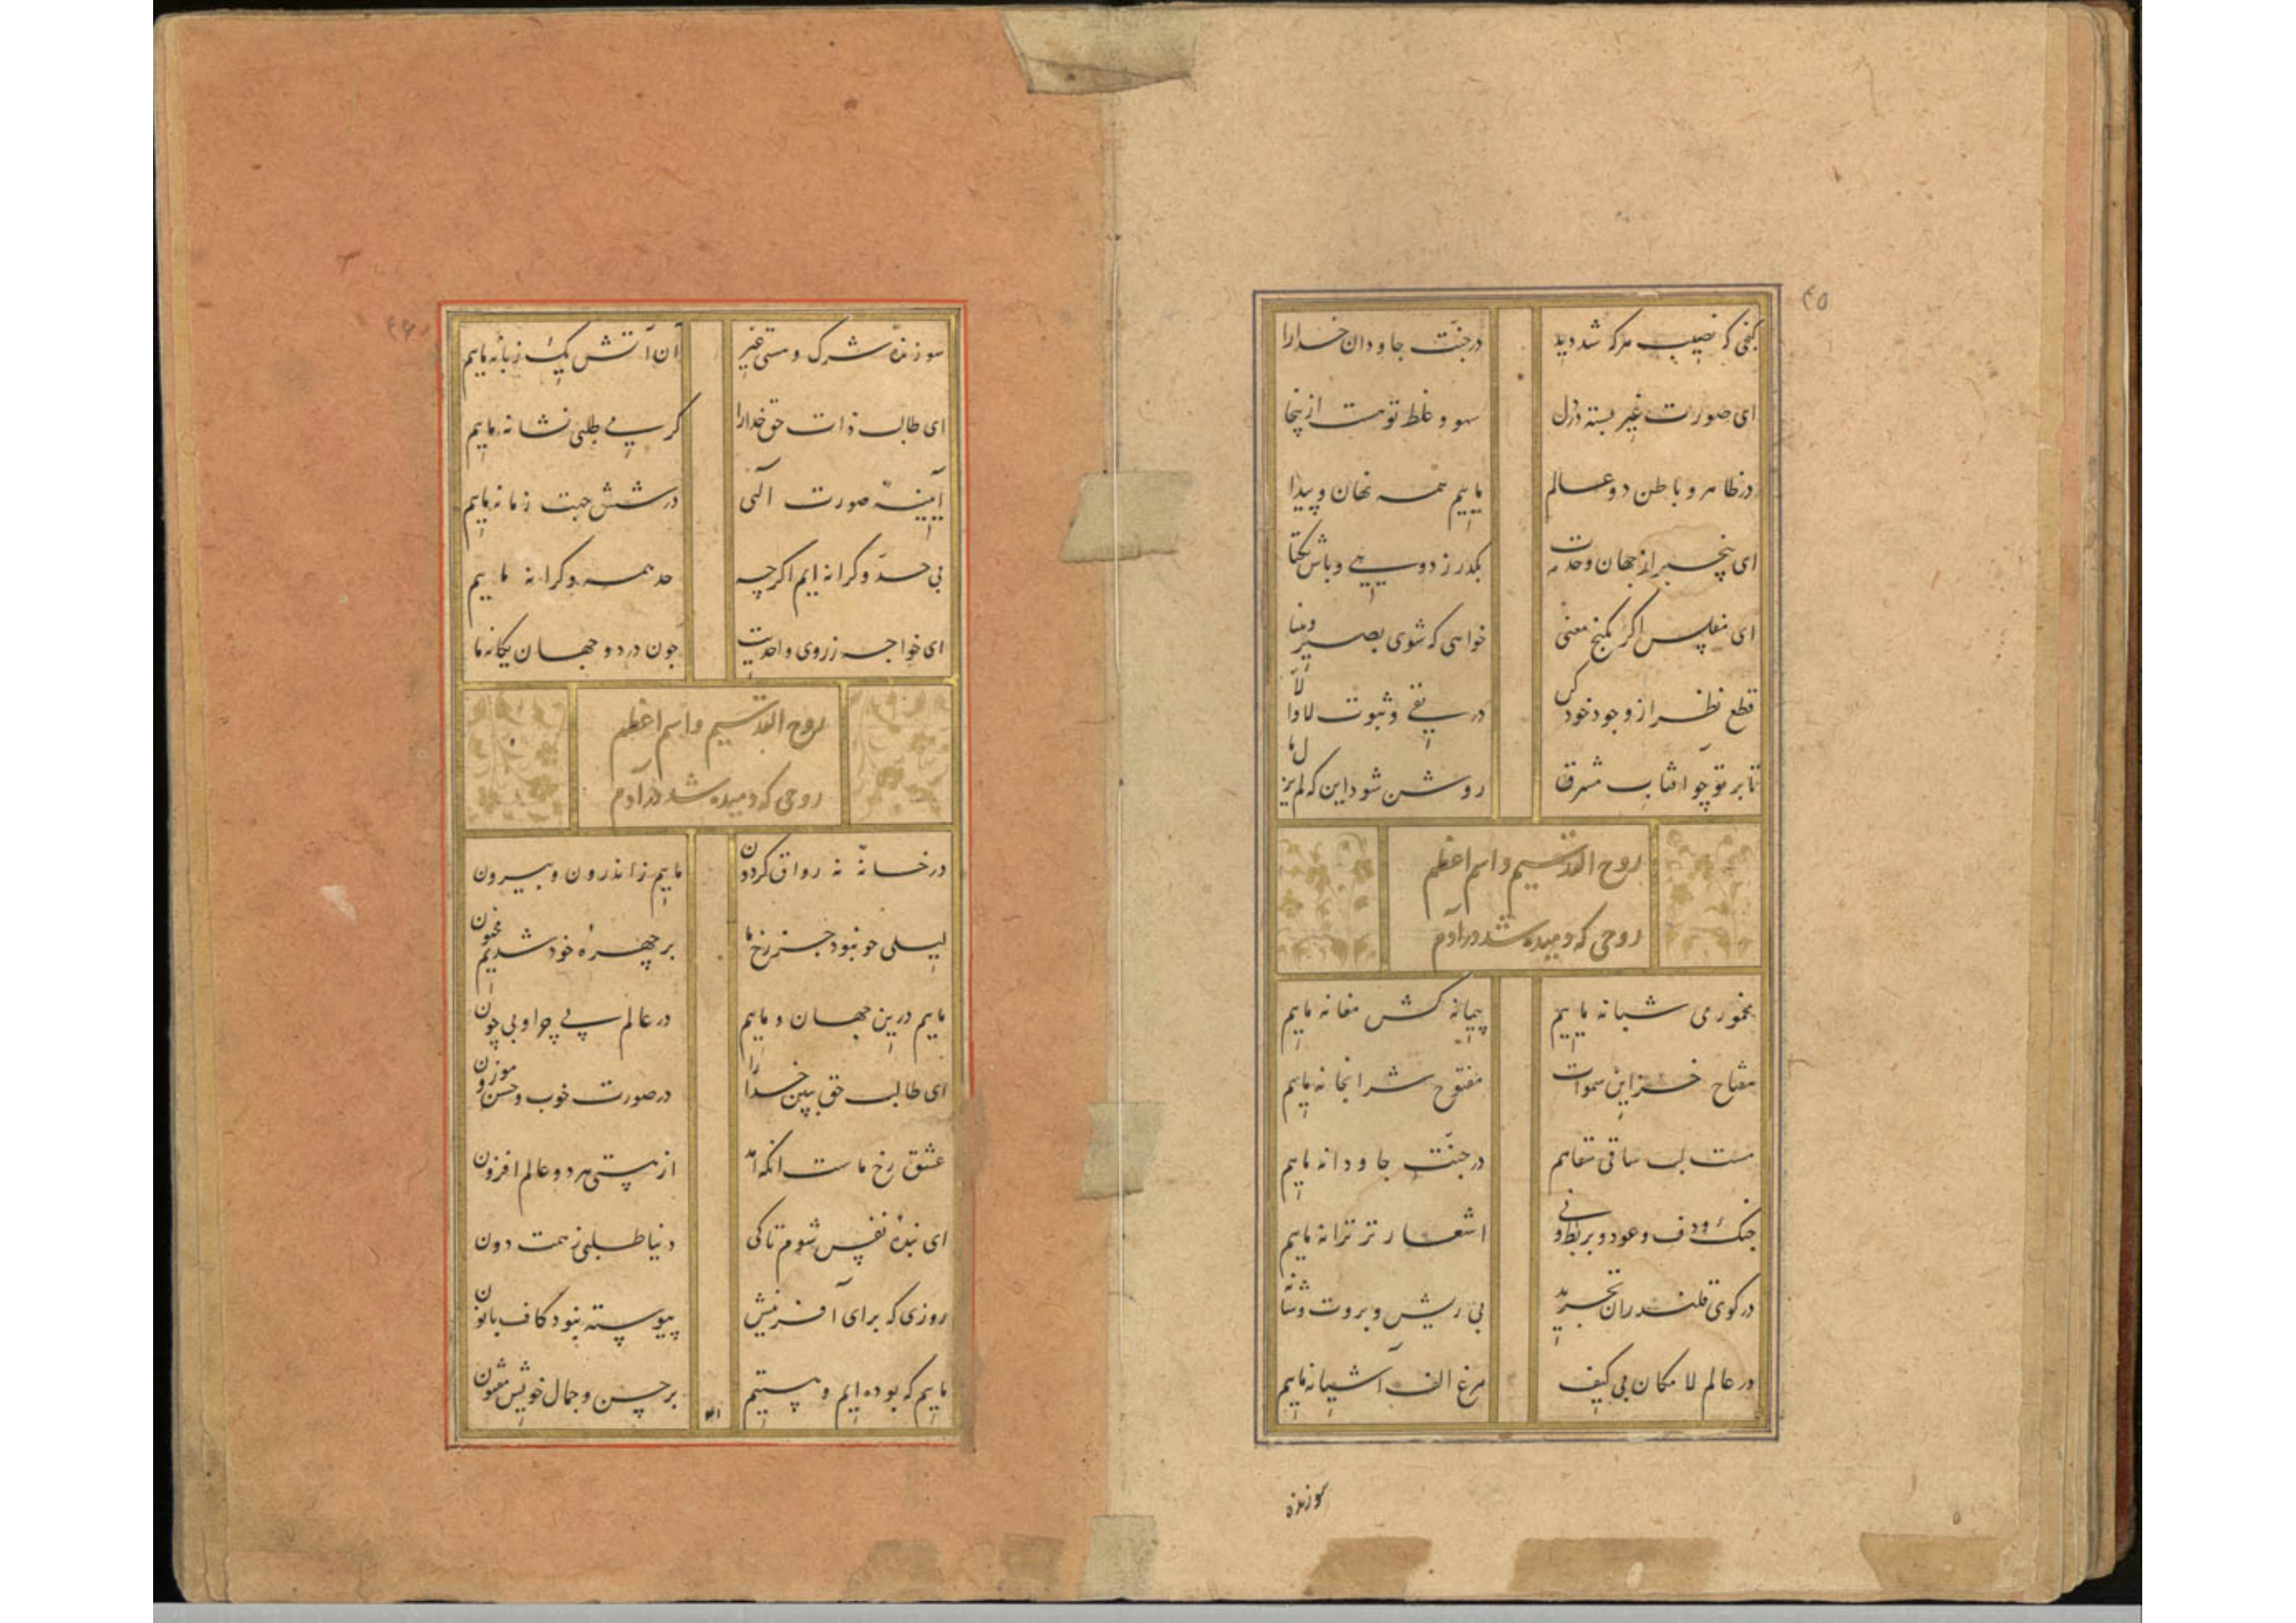 ۴۵
گفتی که نصیب هرکه شد دید
در جنّت جاودان خدا را
ای صورت غیر بسته در دل
سهو و غلط تو هست ازینجا
در ظاهر و باطن دو عالم
ماییم همه نهان و پیدا
ای بیخبر از جهان وحدت
بگذر ز دویی و باش یکتا
ای مفلس اگر بگنج معنی
خواهی که شوی بصیر و بینا
قطع نظر از وجود خود کن
در نفی و ثبوت لا و الّا
تا بر تو چو آفتاب مشرق
روشن شود این که لم یزل ما
روح القدسیم و اسم اعظم
روحی که دمیده شد در آدم
مخموری شبانه ماییم
پیمانه کش مغانه ماییم
مفتاح خزاین سموات
مفتوح شرابخانه ماییم
مست لب ساقی سقاهم
در جنّت جاودانه ماییم
چنک و دف و عود و بربط و نی
اشعار تر ترانه ماییم
در کوی قلندران تجرید
بی ریش و بروت و شانه
در عالم لا مکان بی کیف
مرغ الف آشیانه ماییم
سوزنده
سوزندهٔ شرک و هستی غیر
آن آتش یک زبانه ماییم
ای طالب ذات حق خدا را
گر می طلبی نشانه ماییم
آیینهٔ صورت الهی
در شش جهت زمانه ماییم
بی حدّ و کرانه ایم اگرچه
حد همه و کرانه ماییم
ای خواجه ز روی واحدیت
چون در دو جهان یگانه ما
روح القدسیم و اسم اعظم
روحی که دمیده شد در آدم
در خانهٔ نه رواق گردون
ماییم ز اندرون و بیرون
لیلی چو نبود جز رخ ما
بر چهرهٔ خود شدیم مجنون
ماییم درین جهان و ماییم
در عالم بی چرا و بی چون
ای طالب حق ببین خدا را
در صورت خوب و حسن موزون
عشق رخ ماست آنکه آمد
از هستی هر دو عالم افزون
ای بندهٔ نفس شوم تا کی
دنیا طلبی ز همت دون
روزی که برای آفرینش
پیوسته نبود کاف با نون
ماییم که بوده ایم و هستیم
بر حسن و جمال خویش مفتون